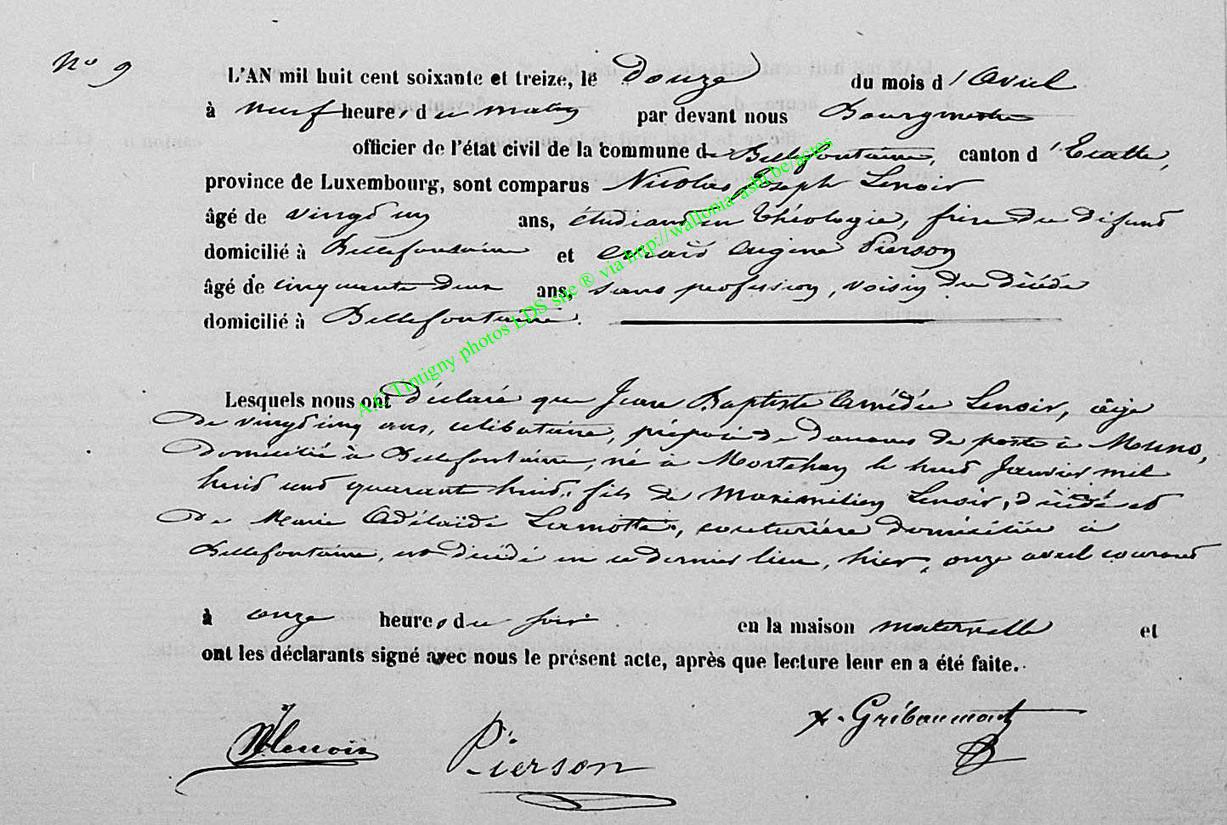 No 9
L'AN mil huit cent soixante et treize, le Douze du mois d'Avril
à neuf heures du matin par devant nous Bourgmestre
officier de l'état civil de la commune de Bellefontaine, canton d'Etalle,
province de Luxembourg, sont comparus Nicolas Joseph Lenoir
âgé de vingt un ans, étudiant en théologie, frère du défunt
domicilié à Bellefontaine et Eugène Pierson
âgé de cinquante deux ans, sans profession, voisin du décédé
domicilié à Bellefontaine.
Lesquels nous ont déclaré que Jean Baptiste Amédée Lenoir, âgé
de vingt cinq ans, célibataire, préposé de douanes de poste à Muno,
domicilié à Bellefontaine, né à Mortehan le huit Janvier mil
huit cent quarante huit, fils de Maximilien Lenoir, décédé et
de Marie Adélaïde Lamotte, couturière domiciliée à
Bellefontaine, est décédé en ce dernier lieu, hier, onze avril courant
à onze heures du soir en la maison maternelle et
ont les déclarants signé avec nous le présent acte, après que lecture leur en a été faite.
NJLenoir Pierson X. Gribaumont
Tintigny photos EDS site ® via http://wallonia-asbl.be/actes